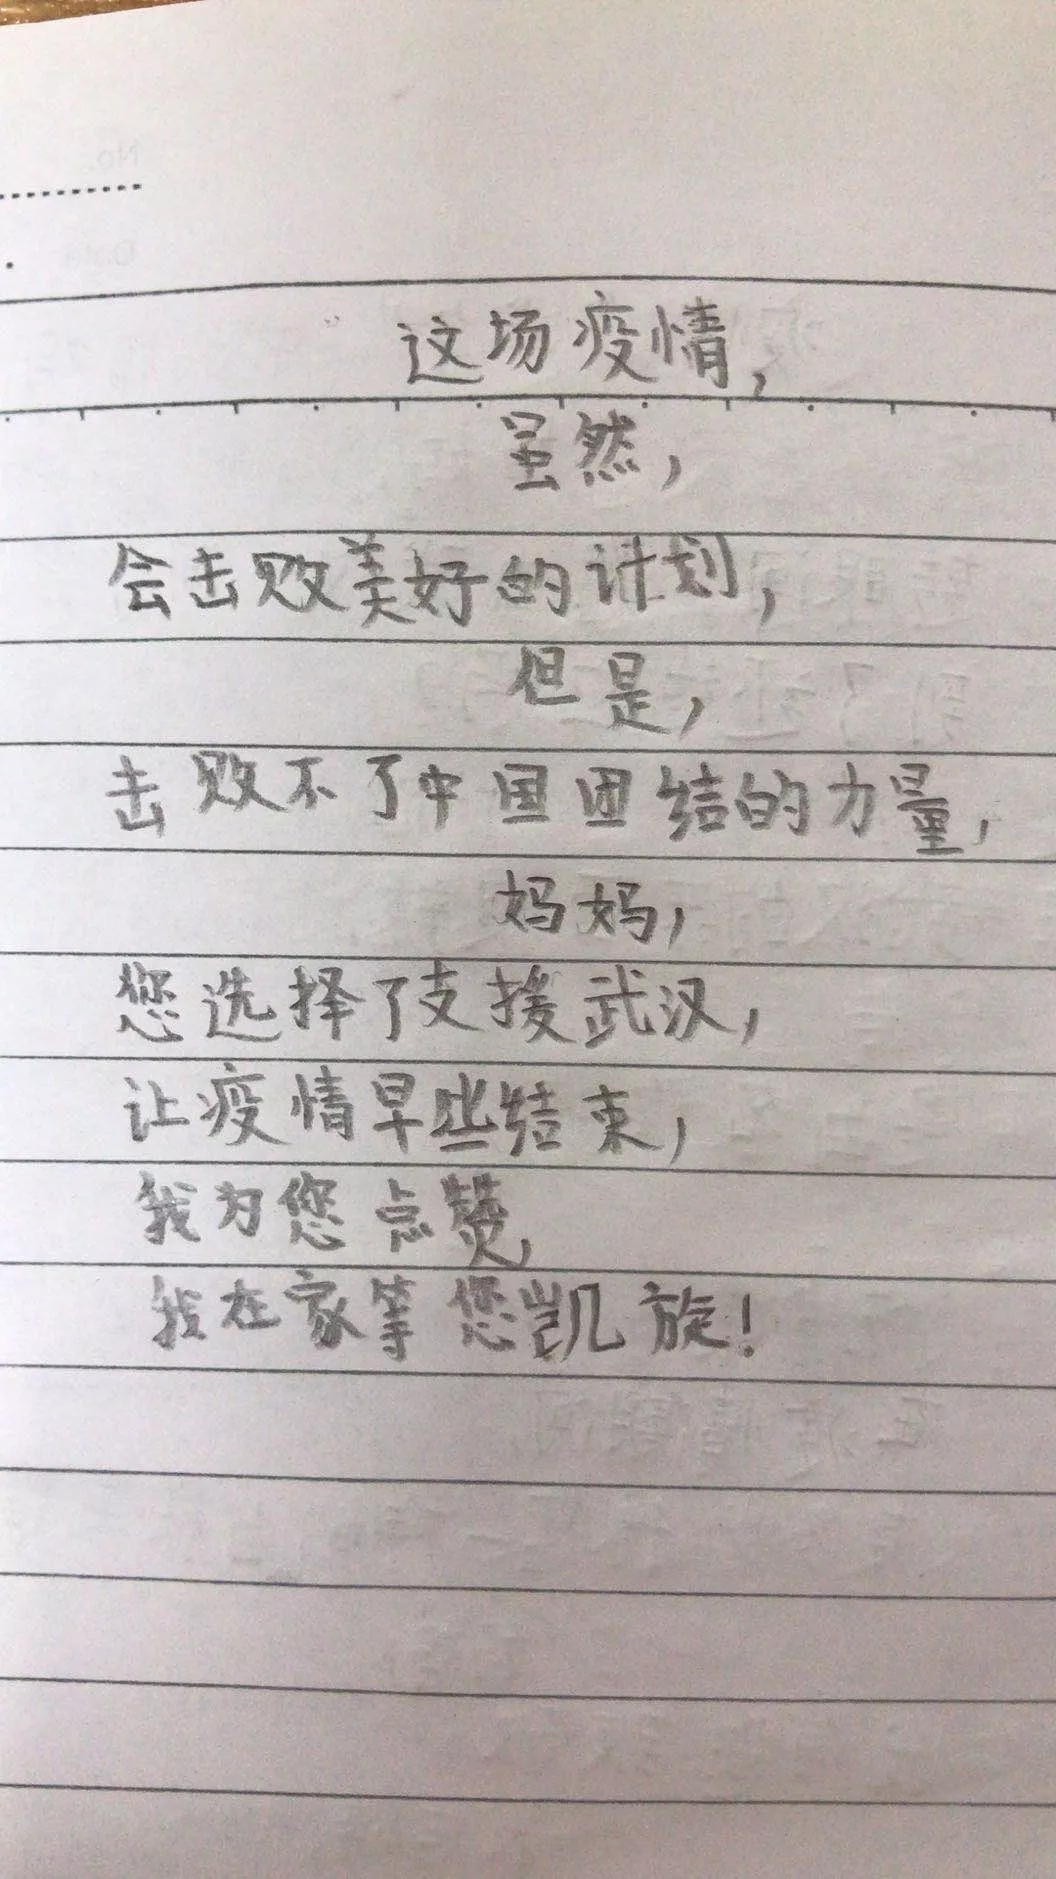 这场疫情,
虽然,
会击败美好的计划,
但是,
击败不了中国团结的力量,
妈妈,
您选择了支援武汉,
让疫情早些结束,
我为您点赞,
我在家等您凯旋!